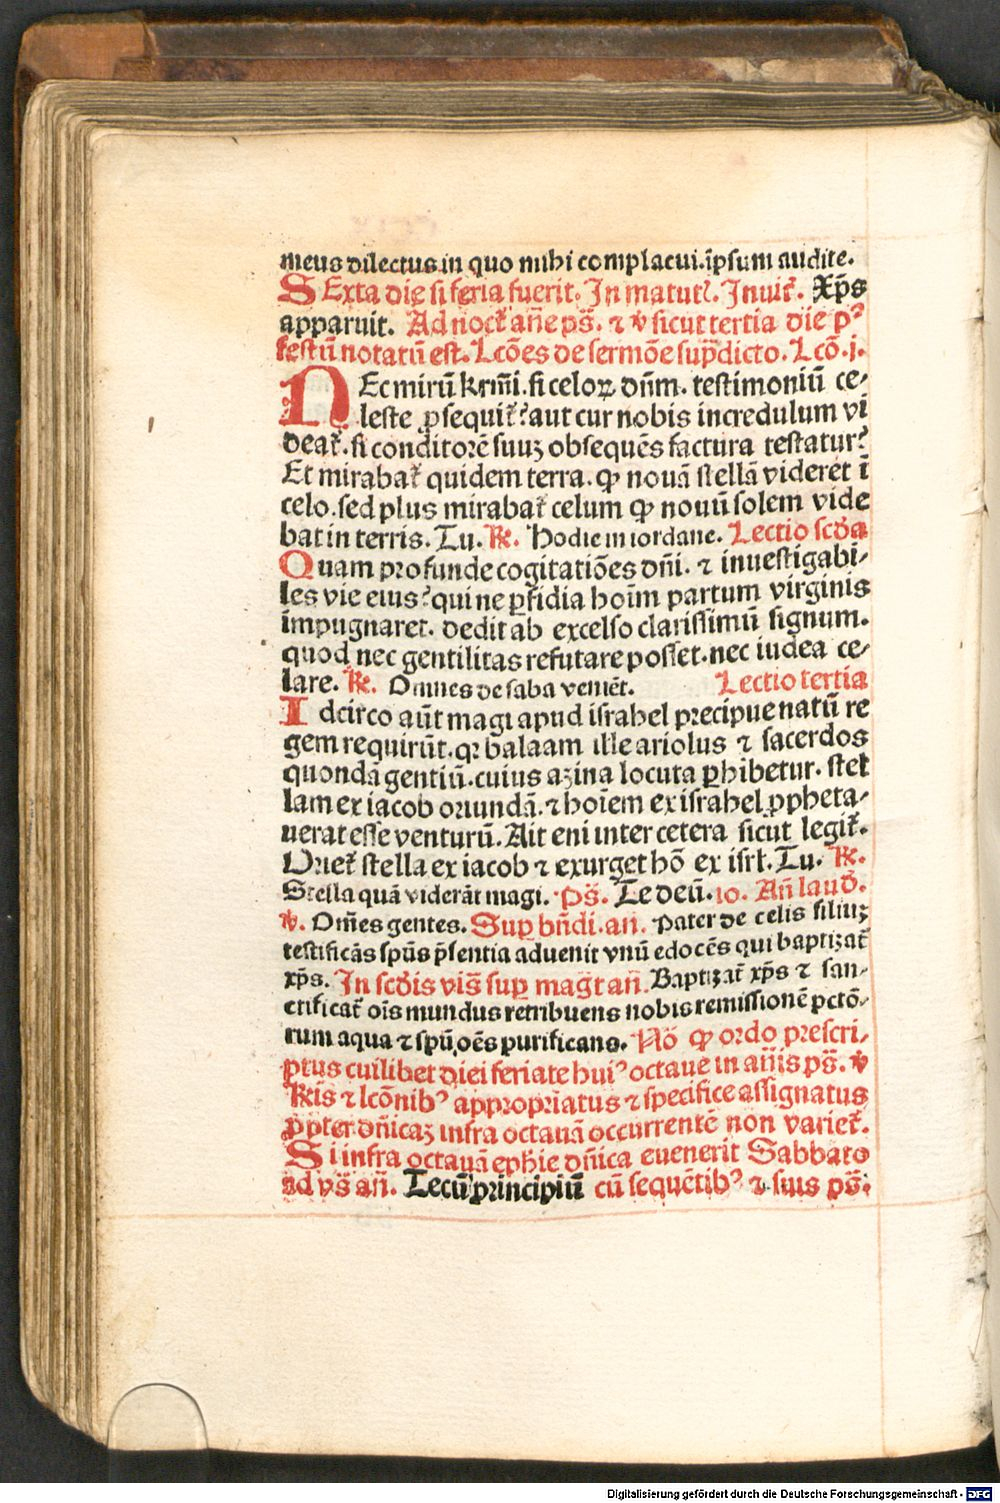 meus dilectus in quo mihi complacui. ip̄sum audite.
SExta die si feria fuerit. In matutꝭ. Inuitꝭ. Xp̄s
apparuit. Ad noctꝭ añe ps̄. ⁊ ℣ sicut tertia die pꝰ
festū notatū est. Lcōes de sermōe sup̄dicto. Lcō .j.
NEc mirū kr̄mi. si celoꝝ dn̄m. testimoniū ce⸗
leste ꝓsequitꝭ? aut cur nobis incredulum vi
deatꝭ. si conditorē suuꝫ obsequēs factura testatur?
Et mirabatꝭ quidem terra. ꝙ nouā stellā videret ī
celo. sed plus mirabatꝭ celum ꝙ nouū solem vide
bat in terris. Tu. ℟. Hodie in iordane. Lectio scd̄a
Quam profunde cogitatiōes dn̄i. ⁊ inuestigabi⸗
les vie eius? qui ne ꝑfidia hoīm partum virginis
impugnaret. dedit ab excelso clarissimū signum.
quod nec gentilitas refutare posset. nec iudea ce⸗
lare. ℟. Omnes de saba veniēt. Lectio tertia
Idcirco aūt magi apud israhel precipue natū re
gem requirūt. qꝛ balaam ille ariolus ⁊ sacerdos
quondā gentiū. cuius azina locuta ꝑhibetur. stel
lam ex iacob oriundā. ⁊ hoīem ex israhel ꝓpheta⸗
uerat esse venturū. Ait eni inter cetera sicut legitꝭ.
Orietꝭ stella ex iacob ⁊ exurget hō ex isrl. Tu. ℟.
Stella quā viderāt magi. Ps̄. Te deū. io. Añ laud̄.
℣. Om̄es gentes. Suꝑ bn̄di. an. Pater de celis filiuꝫ
testificās spūs p̄sentia aduenit vnū edocēs qui baptizatꝭ
xp̄s. In scd̄is vis̄ suꝑ magt̄ añ. Baptizatꝭ xp̄s ⁊ san⸗
ctificatꝭ oīs mundus retribuens nobis remissionē pctō⸗
rum aqua ⁊ spū oēs purificans. Nō ꝙ ordo prescri⸗
ptus cuilibet diei feriate huiꝰ octaue in añis ps̄. ℣
℟is ⁊ lcōnibꝰ appropriatus ⁊ specifice assignatus
ꝓpter dn̄icaꝫ infra octauā occurrentē non varietꝭ.
Si infra octauā eph̄ie dn̄ica euenerit Sabbato
ad vs̄ añ. Tecū principiū cū sequētibꝰ ⁊ suis ps̄.
Digitalisierung gefördert durch die Deutsche Forschungsgemeinschaft - DFG